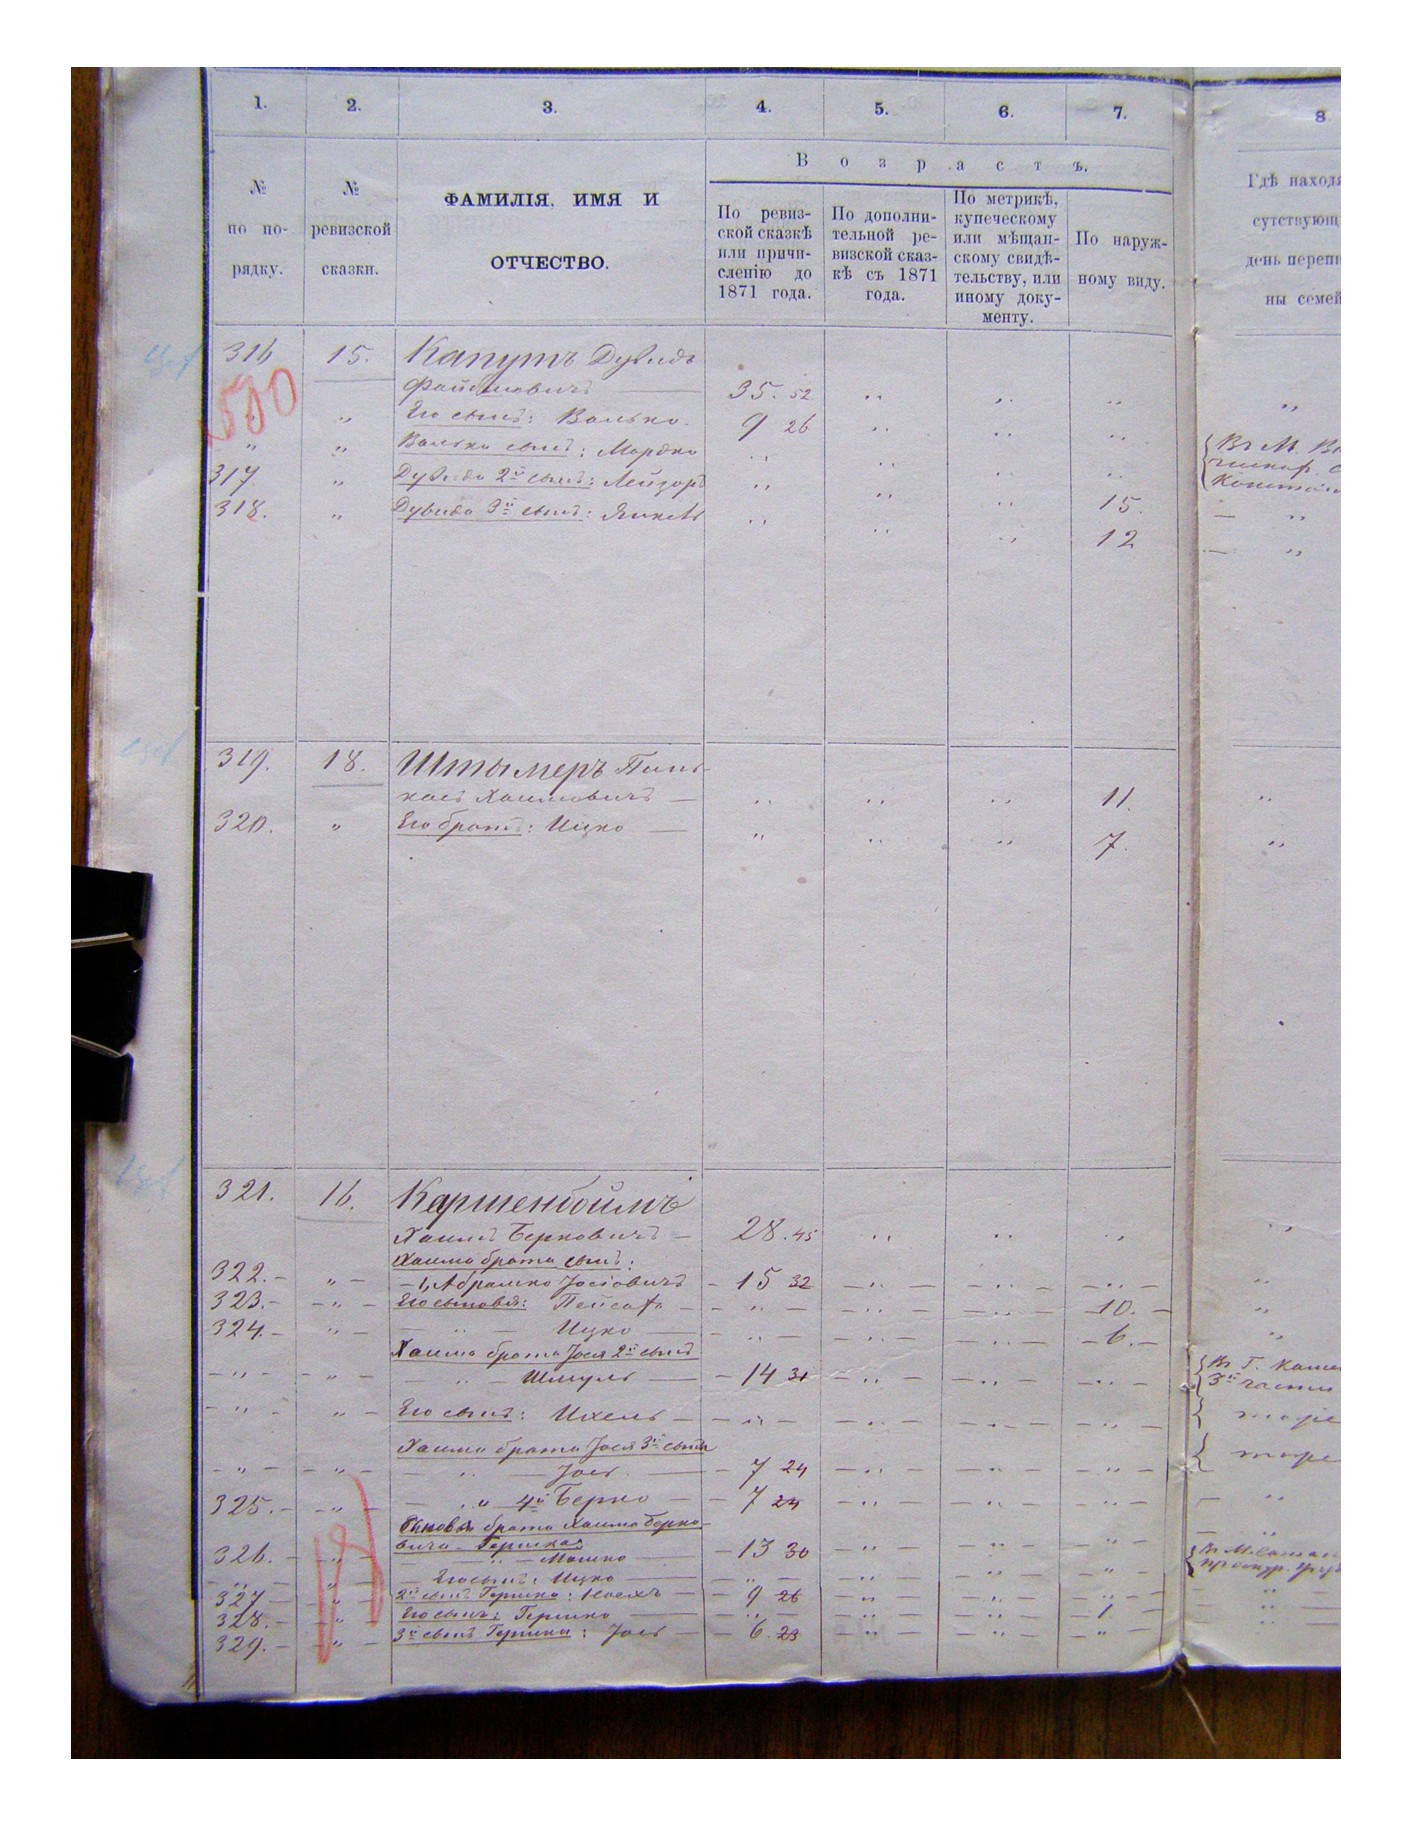 1. 2. 3. 4. 5. 6. 7. 8
Возрастъ.
№ по порядку.
№ ревизской сказки.
ФАМИЛІЯ, ИМЯ И
ОТЧЕСТВО.
По ревиз-
ской сказкѣ
или причи-
сленію до
1871 года.
По дополни-
тельной ре-
визской сказ-
кѣ съ 1871
года.
По метрикѣ,
купеческому
или мѣщан-
скому свидѣ-
тельству, или
иному доку-
менту.
По наруж-
ному виду.
Гдѣ находя
сутствующ
день перепи
ны семей
316 15. Капутъ Дувидъ
500
Файвишовичъ — 35. 52 „ „ „ „
„ „ Его сынъ: Валько. 9 26 „ „ „
„ „ Валька сынъ: Мордко „ „ „ „ Въ М.
317. „ Дувида 2й сынъ: Лейзоръ „ „ „ 15. — „
318. „ Дувида 3й сынъ: Янкель „ „ „ 12 — „
319. 18. Штымеръ Пинь-
касъ Хаимовичъ — „ „ „ 11. „
320. „ Его братъ: Ицко — „ „ „ 7. „
321. 16. Каршенбоймъ
Хаимъ Берковичъ — 28. 45 „ „ „ „
Хаима брата сынъ:
322. — „ — Абрамко Іосіовичъ — 15 32 — „ — — „ — — „ — „
323. — — „ — Его сыновья: Пейсахъ — — „ — — „ — — „ — 10. — „
324. — „ — — „ — Ицко — — „ — — „ — — „ — — 6. — „
Хаима брата Іося 2й сынъ
— „ — — „ — — „ — Шмуль — — 14 31 — „ — — „ — — „ — Въ Г. Каме
3й части
— „ — „ — Его сынъ: Ихель — — „ — — „ — — „ — — „ — тоже
Хаима брата Іося 3й сынъ
— „ — — „ — — „ — Іось — — 7 24 — „ — — „ — — „ — тоже
325. — — „ — — „ 4й Берко — — 7 24 — „ — — „ — — „ — — „
Сыновья брата Хаима Берко-
вича — Гершка
326. — — „ — — „ — Мошко — — 13 30 — „ — — „ — — „ —
— „ — — „ — — Его сынъ: Ицко — — „ — — „ — — „ — — „ —
327 — — „ — 2й сынъ Гершка: — 9 26 — „ — — „ — — „ —
328. — — „ — Его сынъ: Гершко — — „ — — „ — — „ — — 1 —
329. — — „ — 3й сынъ Гершка: Іось — — 6. 23 — „ — — „ — — „ —